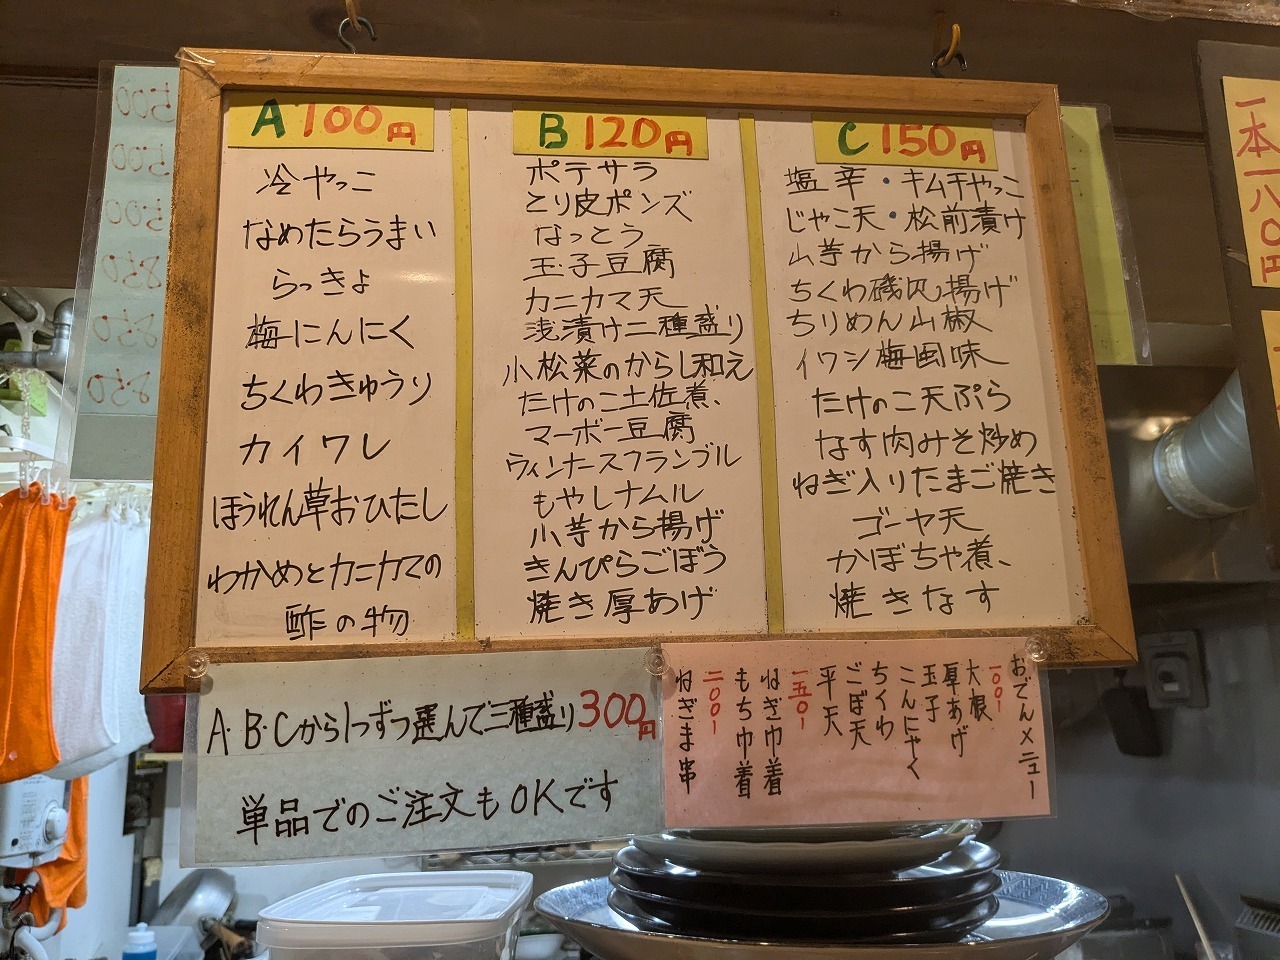 A 100円
冷やっこ
なめたらうまい
らっきょ
梅にんにく
ちくわきゅうり
カイワレ
ほうれん草おひたし
わかめとカニカマの
酢の物
B 120円
ポテサラ
とり皮ポンズ
なっとう
玉子豆腐
カニカマ天
浅漬け二種盛り
小松菜のからし和え
たけのこ土佐煮、
マーボー豆腐
ウィンナースクランブル
もやしナムル
小芋から揚げ
きんぴらごぼう
焼き厚あげ
C 150円
塩辛・キムチやっこ
じゃこ天・松前漬け
山芋から揚げ
ちくわ磯辺揚げ
ちりめん山椒
イワシ梅風味
たけのこ天ぷら
なす肉みそ炒め
ねぎ入りたまご焼き
ゴーヤ天
かぼちゃ煮、
焼きなす
A・B・Cから1つずつ選んで三種盛り300円
単品でのご注文もOKです
おでんメニュー
一〇〇ー
大根
厚あげ
玉子
こんにゃく
ちくわ
ごぼ天
平天
一五〇ー
ねぎ巾着
もち巾着
二〇〇ー
ねぎま串
一本一八〇円
500
500
500
850
850
850